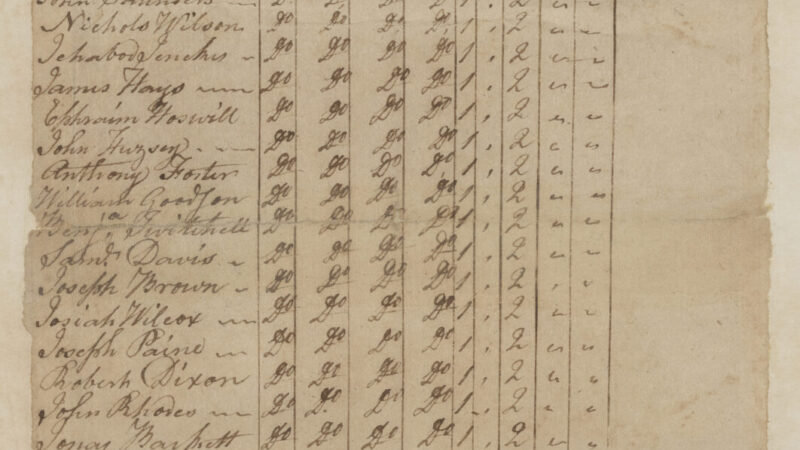 John Saunders Do Do Do Do 1, 2 " "
Nichols Wilson Do Do Do Do 1, 2 " "
Ichabod Jenckes Do Do Do Do 1, 2 " "
James Hays Do Do Do Do 1, 2 " "
Ephraim Do Do Do Do 1, 2 " "
John Do Do Do Do 1, 2 " "
Anthony Foster Do Do Do Do 1, 2 " "
William Goodson Do Do Do Do 1, 2 " "
Benja Twitchell Do Do Do Do 1, 2 " "
Saml. Davis Do Do Do Do 1, 2 " "
Joseph Brown Do Do Do Do 1, 2 " "
Josiah Wilcox Do Do Do Do 1, 2 " "
Joseph Paine Do Do Do Do 1, 2 " "
Robert Dixon Do Do Do Do 1, 2 " "
John Rhodes Do Do Do Do 1, 2 " "
Jonas Do Do Do Do 1, 2 " "